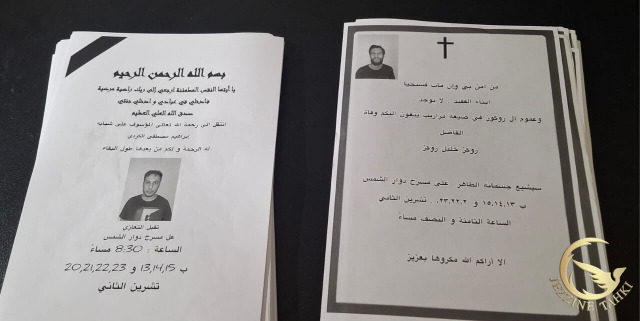 بسم الله الرحمن الرحيم
يا أيتها النفس المطمئنة ارجعي إلى ربك راضية مرضية
فادخلي في عبادي و ادخلي جنتي
صدق الله العلي العظيم
انتقل الى رحمة الله تعالى المأسوف على شبابه
إبراهيم مصطفى الكردي
له الرحمة و لكم من بعدها طول البقاء
تقبل التعازي
على مسرح دوار الشمس
الساعة : 8:30 مساءً
ب 13,14,15 و 20,21,22,23
تشرين الثاني
من آمن بي وإن مات فسيحيا
ابناء الفقيد لا يوجد
وعموم آل روكوز في ضيعة مزاريب ينعون اليكم وفاة
الفاضل
روكز خليل روكز
سيشيع جسمانه الطاهر على مسرح دوار الشمس
ب ١٥,١٤,١٣ و ٢٣,٢٢,٢ تشرين الثاني
الساعة الثامنة و النصف مساءً
الا أراكم الله مكروها بعزيز
JEZZINE TAHKI